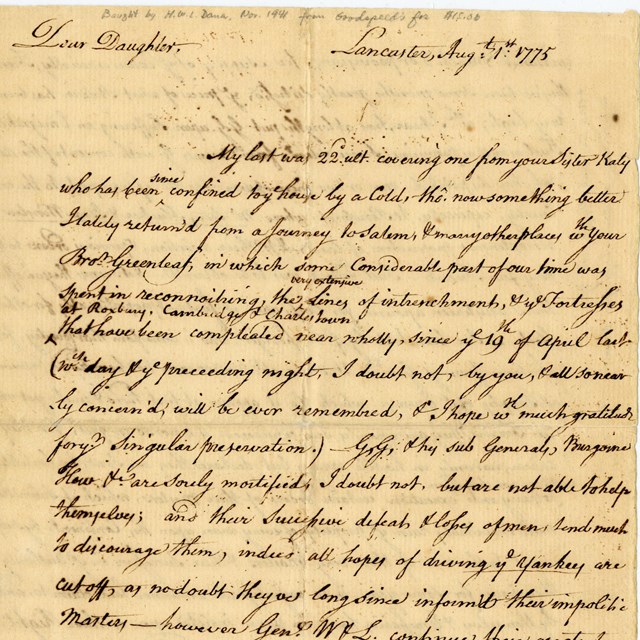 Bought by H.W.L. Dana, Nov. 1941 from Goodspeed's for $15.00
Dear Daughter. Lancaster, Augt. 1st. 1775
My last was 22d. ult. covering one from your Sister Katy
who has been since confined to ye house by a Cold, tho. now something better
I lately return'd from a Journey to Salem, & many other places wth. your
Bror. Greenleaf, in which some Considerable part of our time was
spent in reconnoitring, the very extensive Lines of intrenchment, & ye Fortresses
at Roxbury, Cambridge & Charlestown
that have been compleated near wholly, since ye 19th of April last
(wch. day & ye preceeding night, I doubt not, by you, & all so near
ly concern'd, will be ever remembred, & I hope wth much gratitude
for yr. singular preservation.) — G,G, & his sub Generals, Burgoine
How &c. are sorely mortified, I doubt not, but are not able to help
themselves; and their successive defeats & losses of men, tend much
to discourage them, indeed all hopes of driving ye Yankees are
cut off, as no doubt they've long since inform'd their impolitic
Masters — however Genl. W & L. continue their